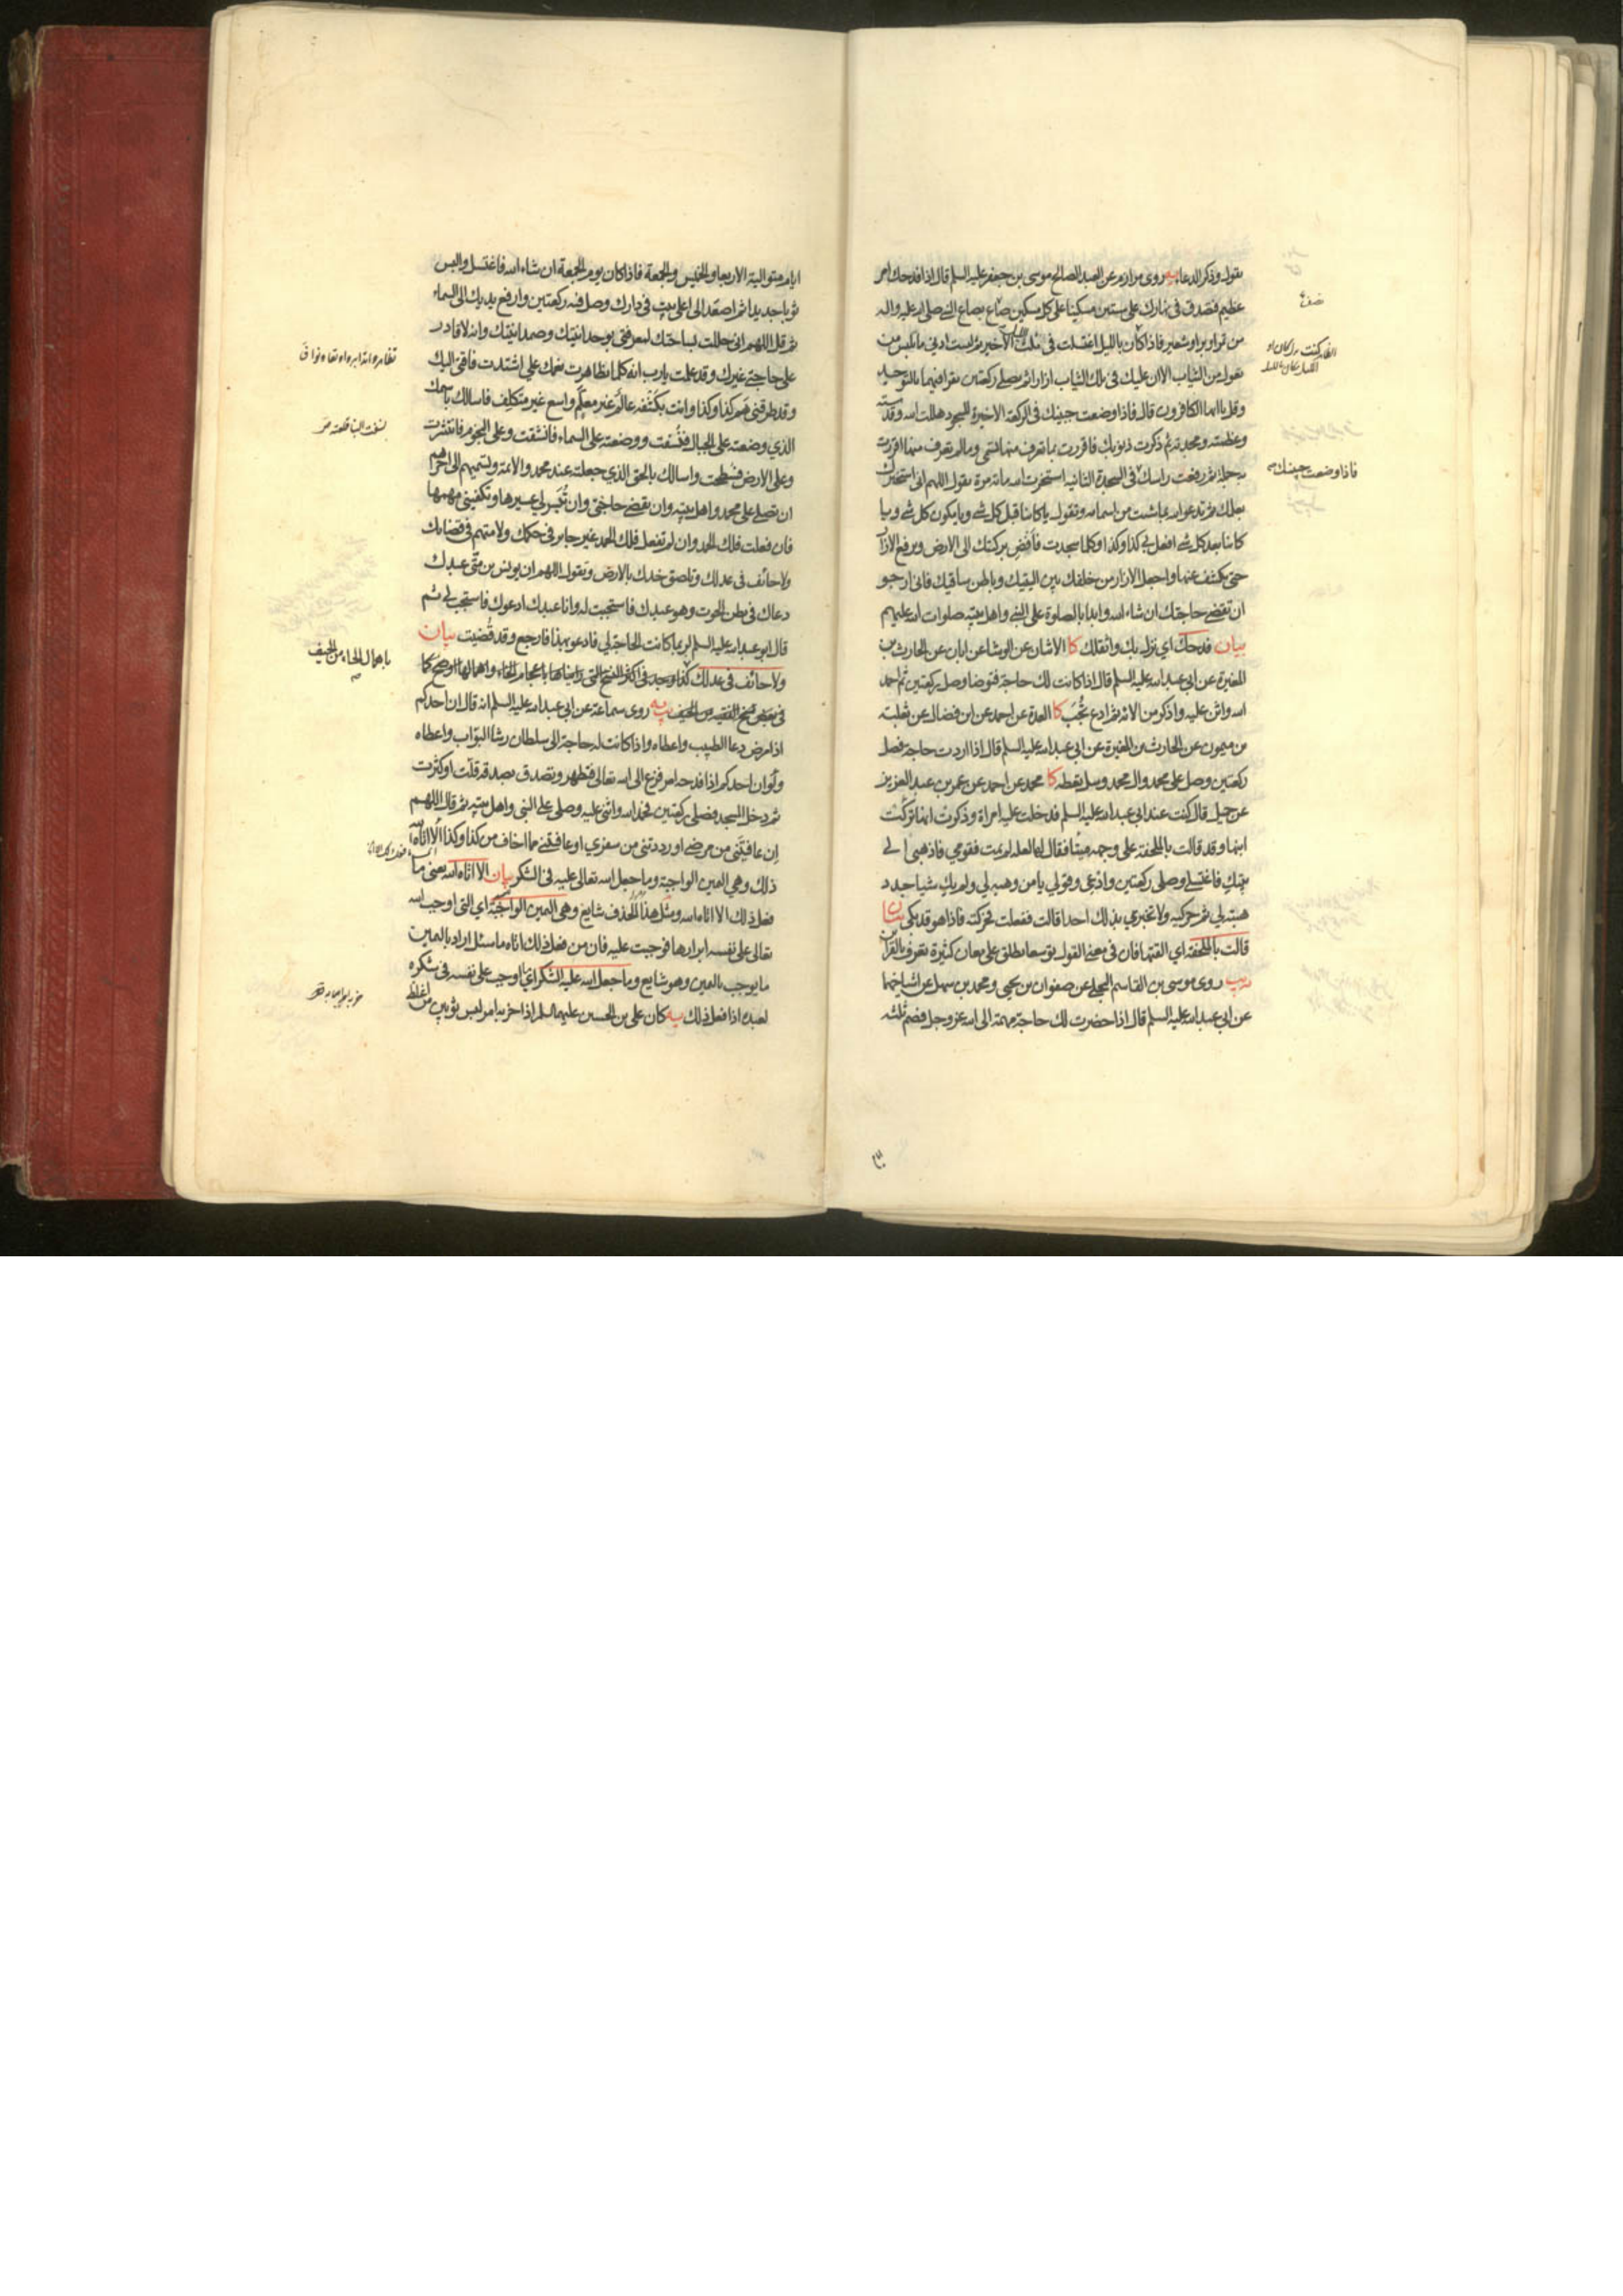 يقول وذكر الدعاء يه روى مرازم عن العبد الصالح موسى بن جعفر عليه السلم قال اذا فدحك امر
عظيم فتصدق في نهارك على ستين مسكينا على كل مسكين صاع بصاع النبي صلى الله عليه واله
من تمر او بر او شعير فاذا كان بالليل اغتسلت في ثلث الليل الاخير ثم لبست ادنى ما يلبس من
تعول من الثياب الا ان عليك في تلك الثياب ازارا ثم تصلي ركعتين تقرا فيهما بالتوحيد
وقل يا ايها الكافرون قال فاذا وضعت جبينك في الركعة الاخيرة للسجود هللت الله وقدسته
وعظمته ومجدته ثم ذكرت ذنوبك فاقررت بما تعرف منها تسمى وما لم تعرف منها اقررت
به جملة ثم رفعت راسك فاذا وضعت جبينك في السجدة الثانية استخرت الله مائة مرة تقول اللهم اني استخيرك
بعلمك ثم تدعو الله بما شئت من اسمائه وتقول يا كائنا قبل كل شي ويا مكون كل شي ويا
كائنا بعد كل شي افعل بي كذا وكذا وكلما سجدت فافض بركبتك الى الارض وترفع الازار
حتى تكشف عنها واجعل الازار من خلفك بين اليتيك وباطن ساقيك فاني ارجو
ان تقضى حاجتك ان شاء الله وابدا بالصلوة على النبي واهل بيته صلوات الله عليهم
بيان فدحك اي نزل بك واثقلك كا الاثنان عن الوشا عن ابان عن الحارث بن
المغيرة عن ابي عبد الله عليه السلم قال اذا كانت لك حاجة فتوضا وصل ركعتين ثم احمد
الله واثن عليه واذكر من الائه ثم ادع تُجَب كا العدة عن احمد عن ابن فضال عن ثعلبة
من ميمون عن الحارث بن المغيرة عن ابي عبد الله عليه السلم قال اذا اردت حاجة فصل
ركعتين وصل على محمد وال محمد وسل تعطه كا محمد عن احمد عن عمر بن عبد العزيز
عن جميل قال كنت عند ابي عبد الله عليه السلم فدخلت عليه امراة وذكرت انها تركت
ابنها وقد قالت بالملحفة على وجهه ميتا فقال لها لعله لم يمت فقومي فاذهبي الى
بيتك فاغتسلي وصلي ركعتين وادعي وقولي يا من وهبه لي ولم يك شيا جدد
هبته لي ثم حركيه ولا تخبري بذلك احدا قالت ففعلت فحركته فاذا هو قد بكى بيان
قالت بالملحفة اي القتها فان في معنى القول توسعا يطلق على معان كثيرة تعرف بالقرائن
يب روى موسى بن القاسم البجلي عن صفوان بن يحيى ومحمد بن سهل عن اشياخهما
عن ابي عبد الله عليه السلم قال اذا حضرت لك حاجة مهمة الى الله عز وجل فصم ثلثة
ايام متوالية الاربعا والخميس والجمعة فاذا كان يوم الجمعة ان شاء الله فاغتسل والبس
ثوبا جديدا ثم اصعد الى اعلى بيت في دارك وصل فيه ركعتين وارفع يديك الى السماء
ثم قل اللهم اني حللت بساحتك لمعرفتي بوحدانيتك وصمدانيتك وانه لا قادر
على حاجتي غيرك وقد علمت يا رب انه كلما تظاهرت نعمك علي اشتدت فاقتي اليك
وقد طرقني هم كذا وكذا وانت بكشفه عالم غير معلم واسع غير متكلف فاسالك باسمك
الذي وضعته على الجبال فنُسفت ووضعته على السماء فانشقت وعلى النجوم فانتثرت
وعلى الارض فسطحت واسالك بالحق الذي جعلته عند محمد والائمة وتسميهم الى اخرهم
ان تصلي على محمد واهل بيته وان تقضي حاجتي وان تُيَسر لي عسيرها وتكفيني مهمها
فان فعلت فلك الحمد وان لم تفعل فلك الحمد غير جاير في حكمك ولا متهم في قضائك
ولا حائف في عدلك وتلصق خدك بالارض وتقول اللهم ان يونس بن متى عبدك
دعاك في بطن الحوت وهو عبدك فاستجبت له وانا عبدك ادعوك فاستجب لي ثم
قال ابو عبد الله عليه السلم لربما كانت الحاجة لي فادعو بهذا فارجع وقد قُضيت بيان
ولا حائف في عدلك كذا وجد في اكثر النسخ التي رايناها باعجام الخاء واهمالها اوضح كما
في بعض نسخ الفقيه من الحيف يه روى سماعة عن ابي عبد الله عليه السلم انه قال ان احدكم
اذا مرض دعا الطبيب واعطاه واذا كانت له حاجة الى سلطان رشا البواب واعطاه
ولو ان احدكم اذا فدحه امر فزع الى الله تعالى فتطهر وتصدق بصدقة قلت او كثرت
ثم دخل المسجد فصلى ركعتين فحمد الله واثنى عليه وصلى على النبي واهل بيته ثم قال اللهم
ان عافيتني من مرضي او رددتني من سفري او عافيتني مما اخاف من كذا وكذا الا اتاه الله
ذلك وهي اليمين الواجبة وما جعل الله تعالى عليه في الشكر بيان الا اتاه الله يعني ما
فعل ذلك الا اتاه الله ومثل هذا الحذف شايع وهي اليمين الواجبة اي التي اوجب الله
تعالى على نفسه ابرارها فوجبت عليه فان من فعل ذلك اتاه ما سئل اراد باليمين
ما يوجب باليمين وهو شايع وما جعل الله عليه في الشكر اي اوجب على نفسه في شكره
لعبده اذا فعل ذلك يه كان علي بن الحسين عليهما السلم اذا حزبه امر لبس ثوبين من اغلظ
باهمال الحاء من الحيف